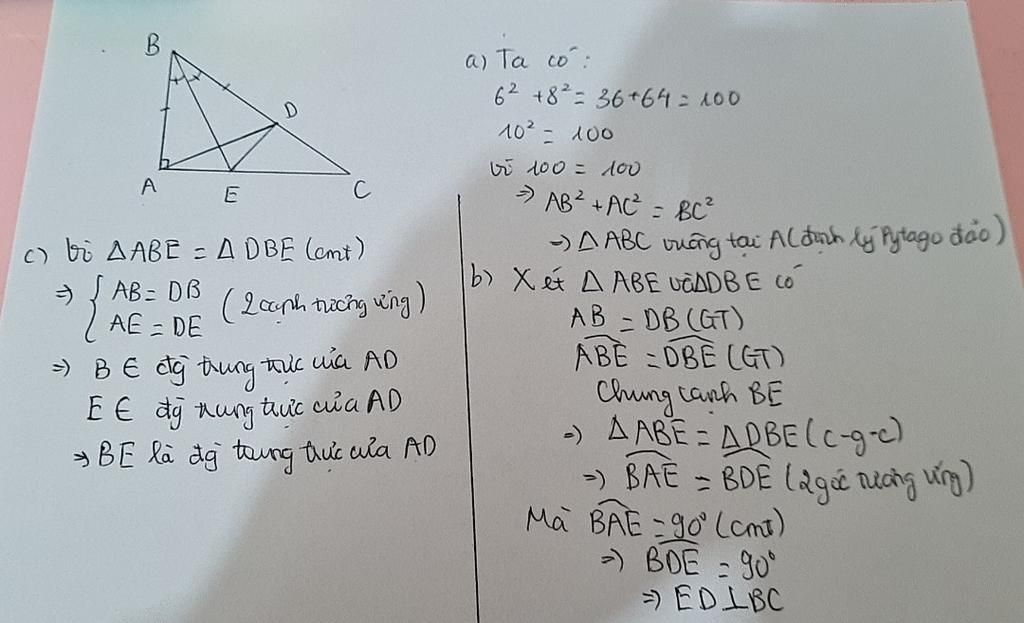 B
D
A
E
C
a) Ta có:
6² + 8² = 36 + 64 = 100
10² = 100
Vì 100 = 100
⇒ AB² + AC² = BC²
⇒ ΔABC vuông tại A (định lý Pytago đảo)
b) Xét ΔABE và ΔDBE có
AB = DB (GT)
\widehat{ABE} = \widehat{DBE} (GT)
Chung cạnh BE
⇒ ΔABE = ΔDBE (c-g-c)
⇒ \widehat{BAE} = \widehat{BDE} (2 góc tương ứng)
Mà \widehat{BAE} = 90° (cmt)
⇒ \widehat{BDE} = 90°
⇒ ED⊥BC
c) Vì ΔABE = ΔDBE (cmt)
⇒ { AB = DB
AE = DE (2 cạnh tương ứng)
⇒ B ∈ đg̀ trung trực của AD
E ∈ đg̀ trung trực của AD
⇒ BE là đg̀ trung trực của AD